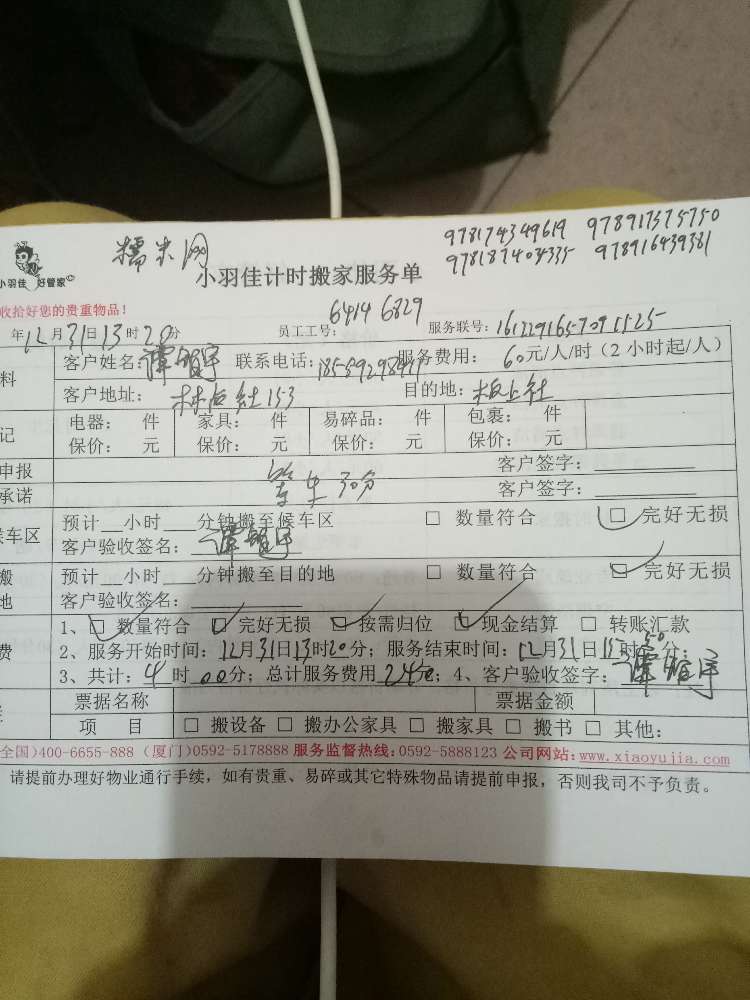 糯米网
978174349619 978917375750
978187404335 978916439381
小羽佳 好管家
小羽佳计时搬家服务单
收拾好您的贵重物品!
6414 6829
年12月31日13时20分 员工工号: 服务联号:
料 客户姓名: 联系电话: 服务费用: 60元/人/时(2小时起/人)
客户地址: 社153 目的地: 板上社
记 电器: 件 家具: 件 易碎品: 件 包裹: 件
保价: 元 保价: 元 保价: 元 保价: 元
申报 客户签字:
等车30分
承诺 客户签字:
候车区 预计__小时___分钟搬至候车区 □ 数量符合 □ 完好无损
客户验收签名:
搬 预计__小时___分钟搬至目的地 □ 数量符合 □ 完好无损
地 客户验收签名:
1、□ 数量符合 □ 完好无损 □ 按需归位 □ 现金结算 □ 转账汇款
费 2、服务开始时间:12月31日13时20分;服务结束时间:12月31日15时50分;
3、共计:4时00分;总计服务费用240元;4、客户验收签字:
票据名称 票据金额
项 目 □ 搬设备 □ 搬办公家具 □ 搬家具 □ 搬书 □ 其他:
全国)400-6655-888 (厦门)0592-5178888 服务监督热线:0592-5888123 公司网站:www.xiaoyujia.com
请提前办理好物业通行手续,如有贵重、易碎或其它特殊物品请提前申报,否则我司不予负责。